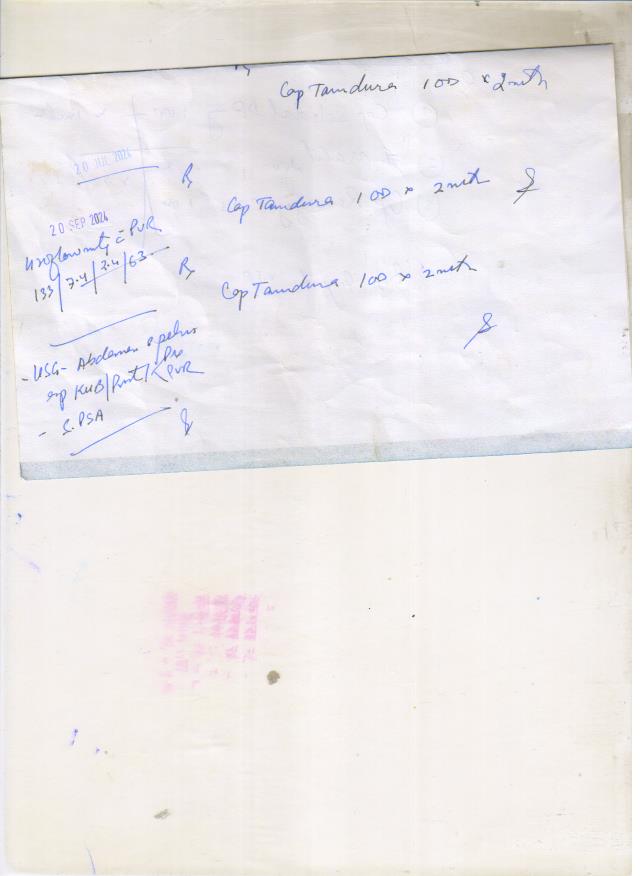 Cap Tamdura 1 OD x 2 mth
20 JUL 2024
Rx
Cap Tamdura 1 OD x 2 mth
20 SEP 2024
Uroflowmetry c̄ PVR
133/7.4/3.4/63
Rx
Cap Tamdura 1 OD x 2 mth
- USG - Abdomen & pelvis
esp KUB/Prost/c̄ Pre
PVR
- S. PSA